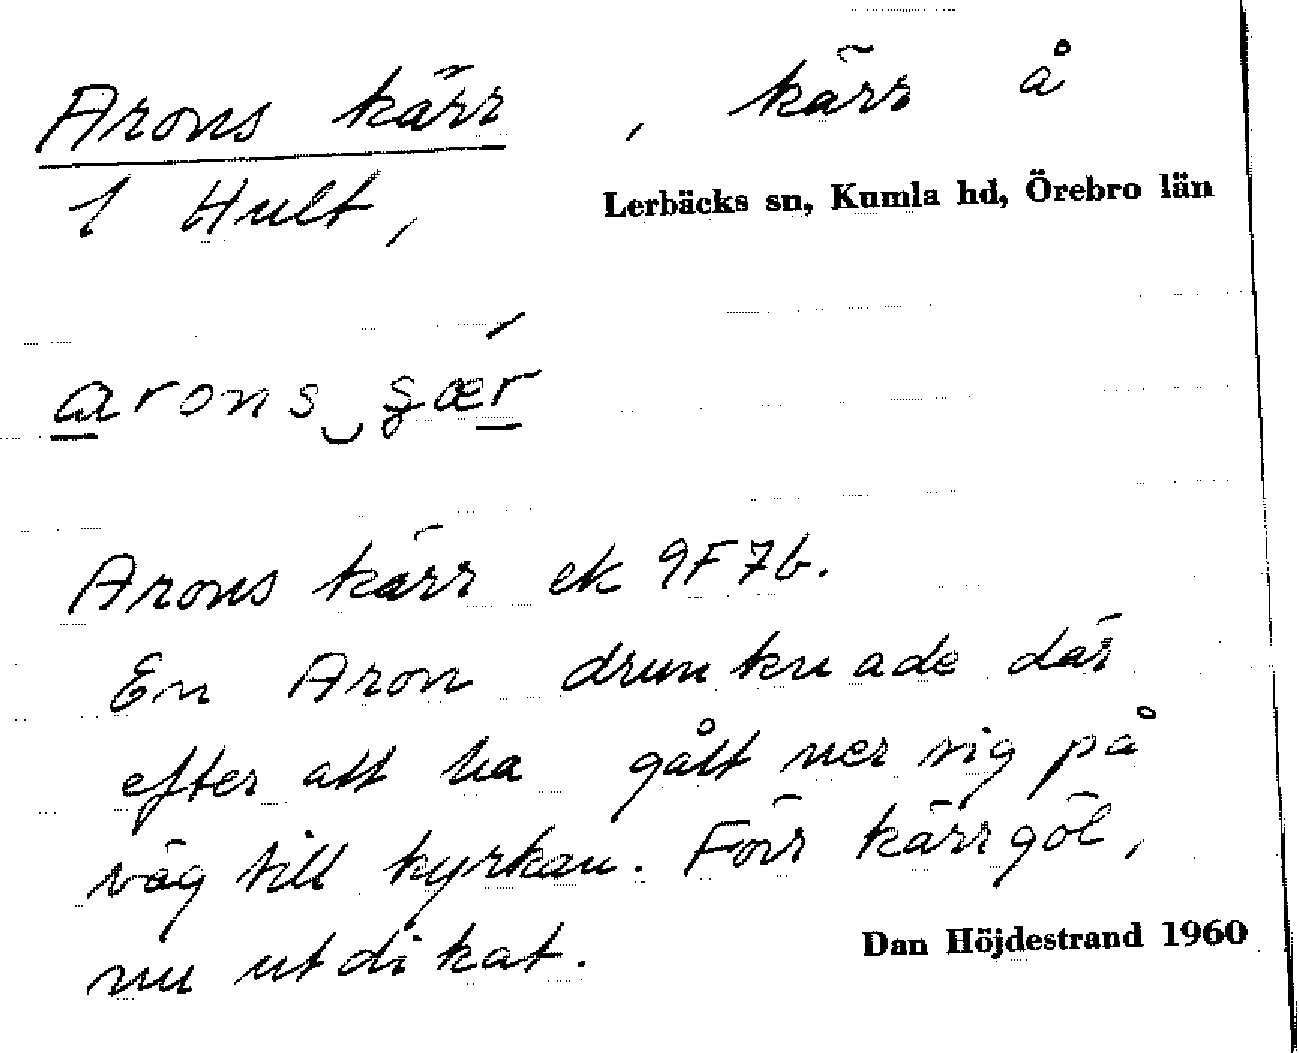 Arons kärr, kärr å
1 Hult, Lerbäcks sn, Kumla hd, Örebro län
arons
Arons kärr ek 9F7b.
En Aron drunknade där
efter att ha gått ner sig på
väg till kyrkan. Förr kärrgöl,
nu utdikat.
Dan Höjdestrand 1960